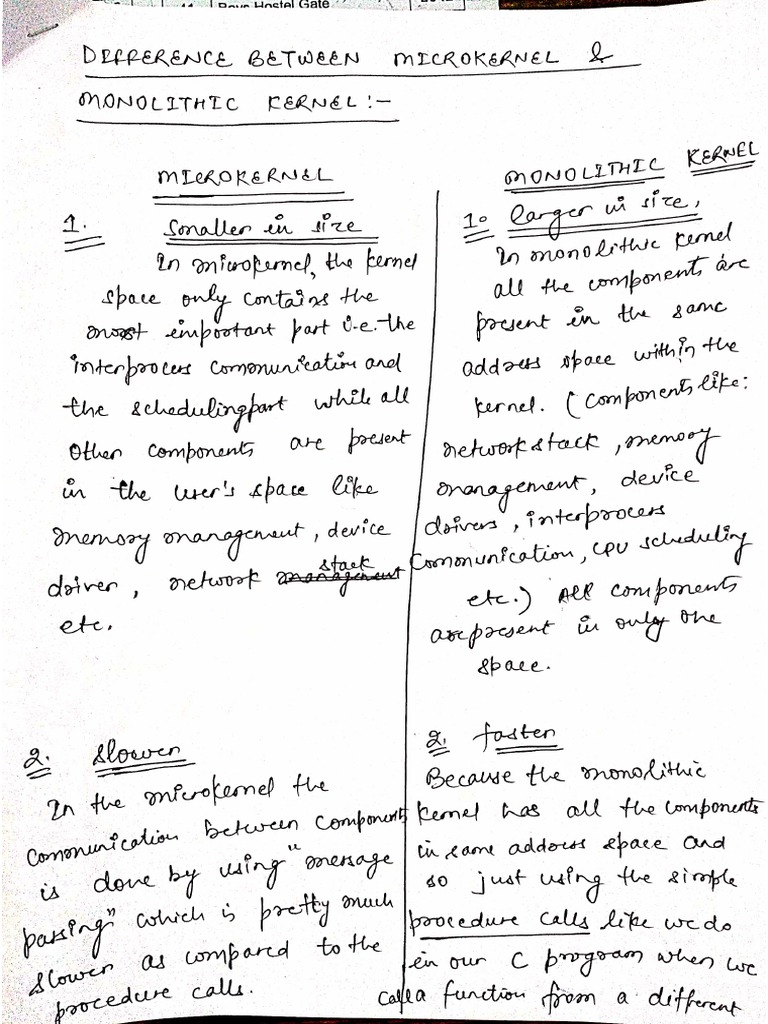 11 Boys Hostel Gate
DIFFERENCE BETWEEN MICROKERNEL &
MONOLITHIC KERNEL:-
MICROKERNEL
1. Smaller in size
In microkernel, the kernel
space only contains the
most important part i.e. the
interprocess communication and
the scheduling part while all
other components are present
in the user's space like
memory management, device
driver, network management stack
etc.
2. Slower
In the microkernel the
communication between components
is done by using "message
passing" which is pretty much
slower as compared to the
procedure calls.
MONOLITHIC KERNEL
1. larger in size,
In monolithic kernel
all the components are
present in the same
address space within the
kernel. (Components like:
network stack, memory
management, device
drivers, interprocess
communication, CPU scheduling
etc.) All components
are present in only one
space.
2. faster
Because the monolithic
kernel has all the components
in same address space and
so just using the simple
procedure calls like we do
in our C program when we
call a function from a different